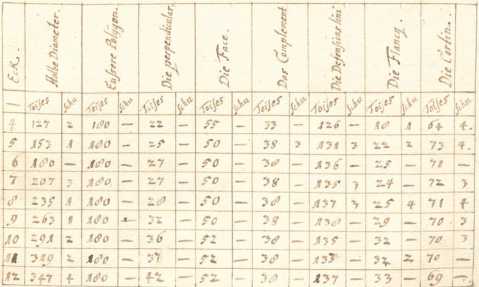 Eck. Halbe Diameter. Eussere Polygon. Die perpendicular. Die Face. Das Complement Die Defension lini Die Flancq. Die Cortin.
Toises Schu Toises Schu Toises Schu Toises Schu Toises Schu Toises Schu Toises Schu Toises Schu
4 127 2 180 — 22 — 55 — 33 — 126 — 18 1 64 4.
5 153 1 180 — 25 — 50 — 38 3 131 3 22 2 73 4.
6 180 — 180 — 27 — 50 — 38 — 136 — 25 — 71 —
7 207 3 180 — 27 — 50 — 38 — 135 3 24 — 72 3
8 235 1 180 — 28 — 50 — 38 — 137 3 25 4 71 4
9 263 1 180 — 32 — 50 — 38 — 130 — 29 — 70 3
10 291 2 180 — 36 — 52 — 38 — 135 — 32 — 70 3
11 319 2 180 — 37 — 52 — 38 — 32 2 70 —
12 347 4 180 — 42 — 52 — 38 — 137 — 33 — 69 —